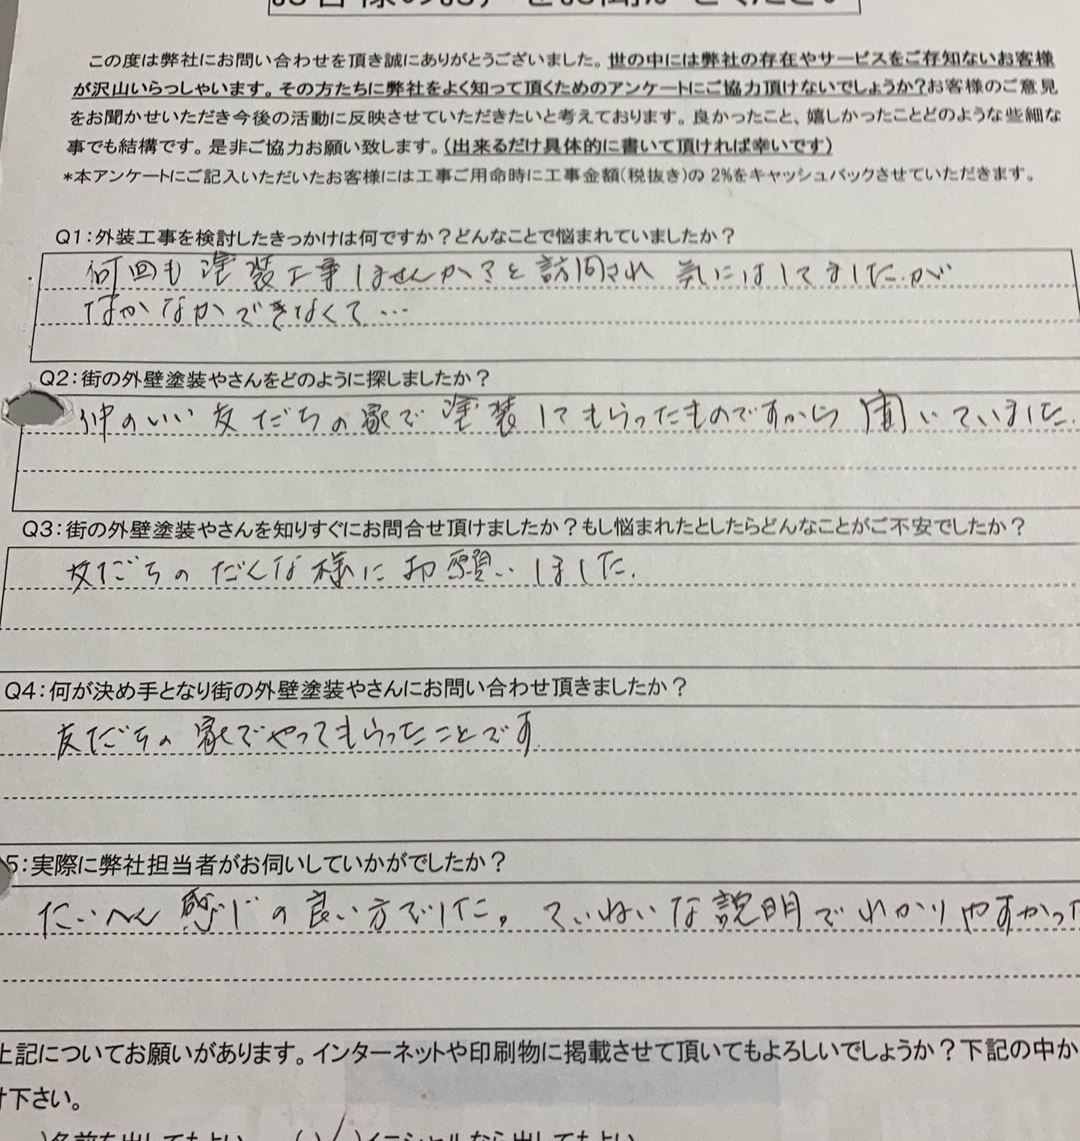 この度は弊社にお問い合わせを頂き誠にありがとうございました。世の中には弊社の存在やサービスをご存知ないお客様
が沢山いらっしゃいます。その方たちに弊社をよく知って頂くためのアンケートにご協力頂けないでしょうか?お客様のご意見
をお聞かせいただき今後の活動に反映させていただきたいと考えております。良かったこと、嬉しかったことどのような些細な
事でも結構です。是非ご協力お願い致します。(出来るだけ具体的に書いて頂ければ幸いです)
*本アンケートにご記入いただいたお客様には工事ご用命時に工事金額(税抜き)の 2%をキャッシュバックさせていただきます。
Q1:外装工事を検討したきっかけは何ですか?どんなことで悩まれていましたか?
何回も塗装工事しませんか?と訪問され 気にはしてましたが
なかなかできなくて…
Q2:街の外壁塗装やさんをどのように探しましたか?
仲のいい友だちの家で塗装してもらったものですから聞いていました.
Q3:街の外壁塗装やさんを知りすぐにお問合せ頂けましたか?もし悩まれたとしたらどんなことがご不安でしたか?
友だちのだんな様にお願いしました.
Q4:何が決め手となり街の外壁塗装やさんにお問い合わせ頂きましたか?
友だちの家でやってもらったことです.
5:実際に弊社担当者がお伺いしていかがでしたか?
たいへん感じの良い方でした。ていねいな説明でわかりやすかった
上記についてお願いがあります。インターネットや印刷物に掲載させて頂いてもよろしいでしょうか?下記の中か
け下さい。
)名前を出してもよい ( )イニシャルなら出してもよい